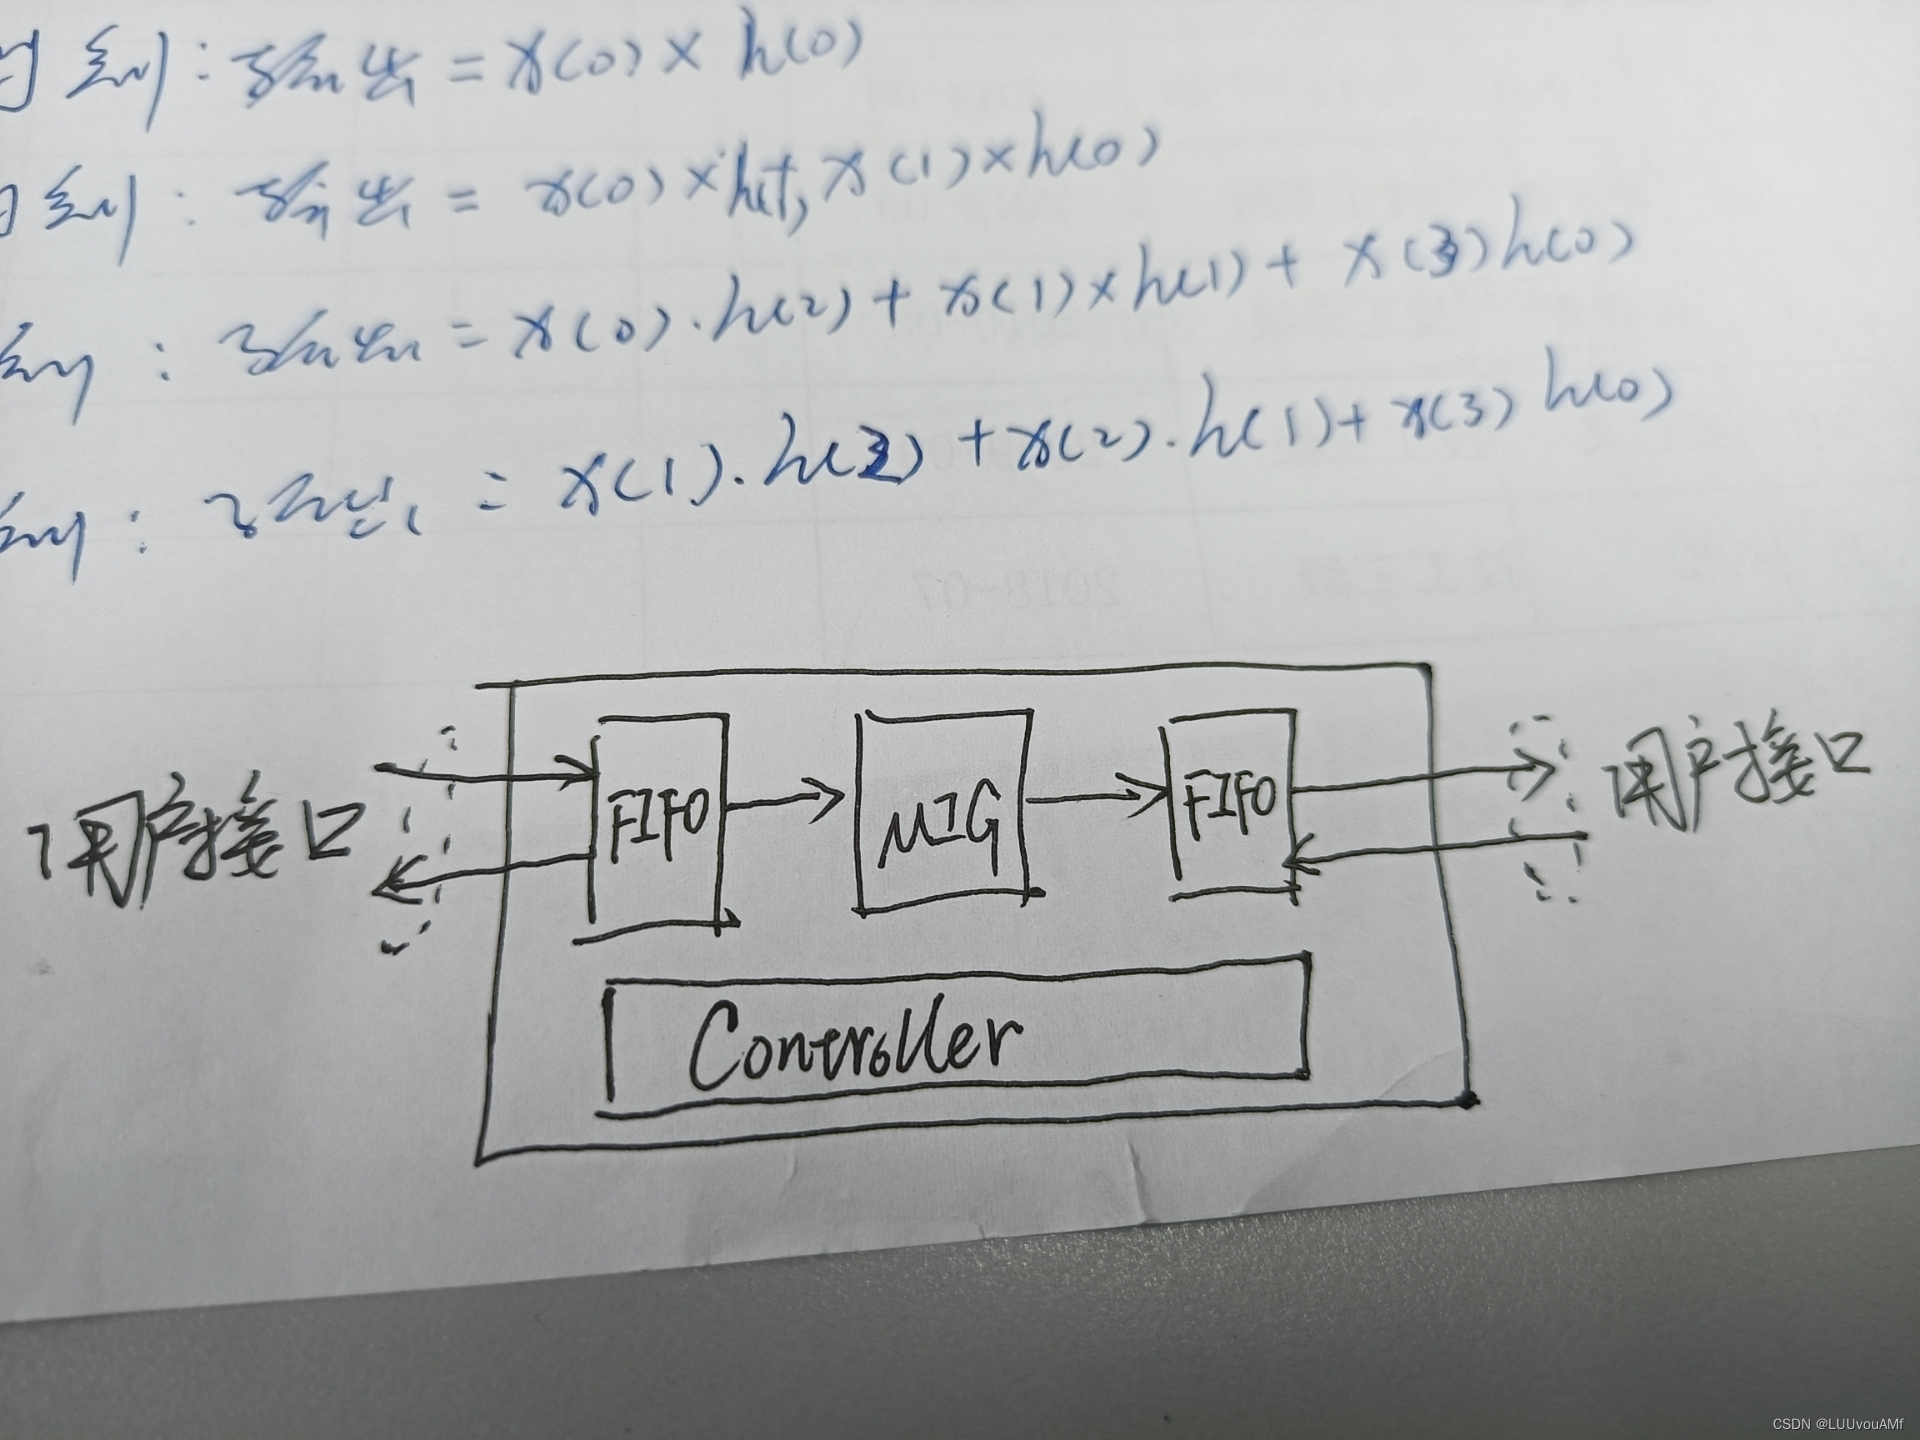 时刻:输出=x(0)×h(0)
时刻:输出=x(0)×h(1)x(1)×h(0)
刻:输出=x(0).h(2)+x(1)×h(1)+x(3)h(0)
刻:输出=x(1).h(2)+x(2).h(1)+x(3)h(0)
2018-07
用户接口
FIFO
MIG
FIFO
用户接口
Controller
CSDN @LUUvouAMf